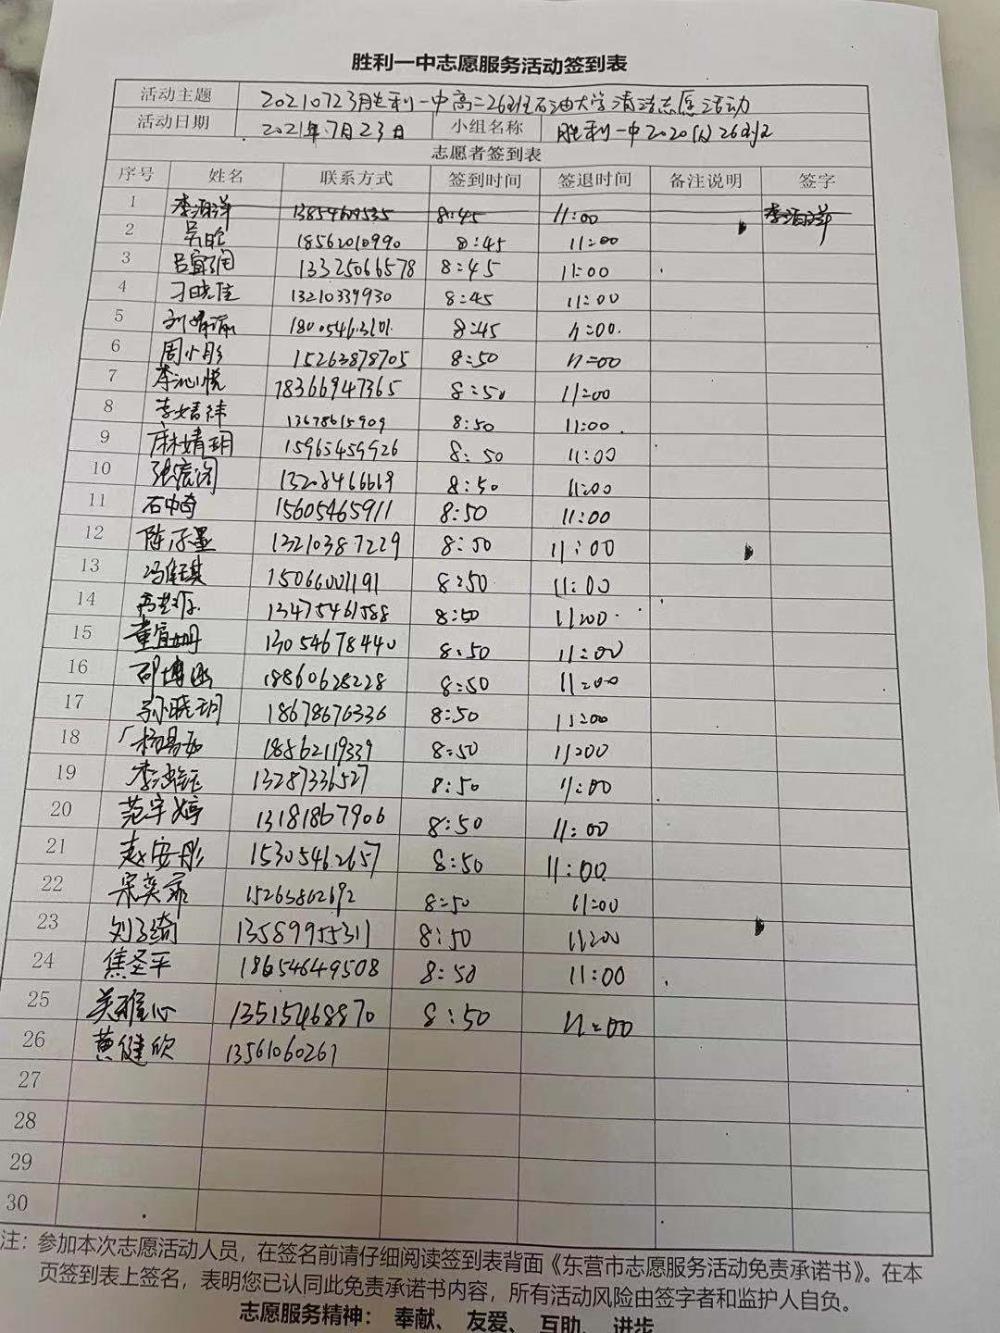 胜利一中志愿服务活动签到表
活动主题 20210723胜利一中高二26班石油大学清洁志愿活动
活动日期 2021年7月23日 小组名称 胜利一中2020级26班
志愿者签到表
序号 姓名 联系方式 签到时间 签退时间 备注说明 签字
1 8:45 11:00
2 吴晗 18562010990 8:45 11:00
3 13325066578 8:45 11:00
4 刁晓佳 13210339930 8:45 11:00
5 18005463101. 8:45 11:00.
6 周小彤 15263878705 8:50 11:00
7 李沁悦 18366947365 8:50 11:00
8 李婧祎 13678615909 8:50 11:00.
9 麻婧玥 15965459926 8:50 11:00
10 8:50 11:00
11 石中奇 15605465911 8:50 11:00
12 陈子墨 13210387229 8:50 11:00
13 15066001191 8:50 11:00
14 13475461588 8:50 11:00
15 董宜姗 13054678440 8:50 11:00
16 邵博涵 18860628228 8:50 11:00
17 孙晓玥 18678676336 8:50 11:00
18 18562119339 8:50 11:00
19 13287336527 8:50 11:00
20 范宇婷 13181867906 8:50 11:00
21 赵安彤 15305462657 8:50 11:00
22 宋奕霏 15263862692 8:50 11:00
23 刘子绮 13589955311 8:50 11:00
24 焦圣平 18654649508 8:50 11:00
25 13515468870 8:50 11:00
26 黄健欣 13561060261
27
28
29
30
注：参加本次志愿活动人员，在签名前请仔细阅读签到表背面《东营市志愿服务活动免责承诺书》。在本
页签到表上签名，表明您已认同此免责承诺书内容，所有活动风险由签字者和监护人自负。
志愿服务精神： 奉献、 友爱、 互助、 进步